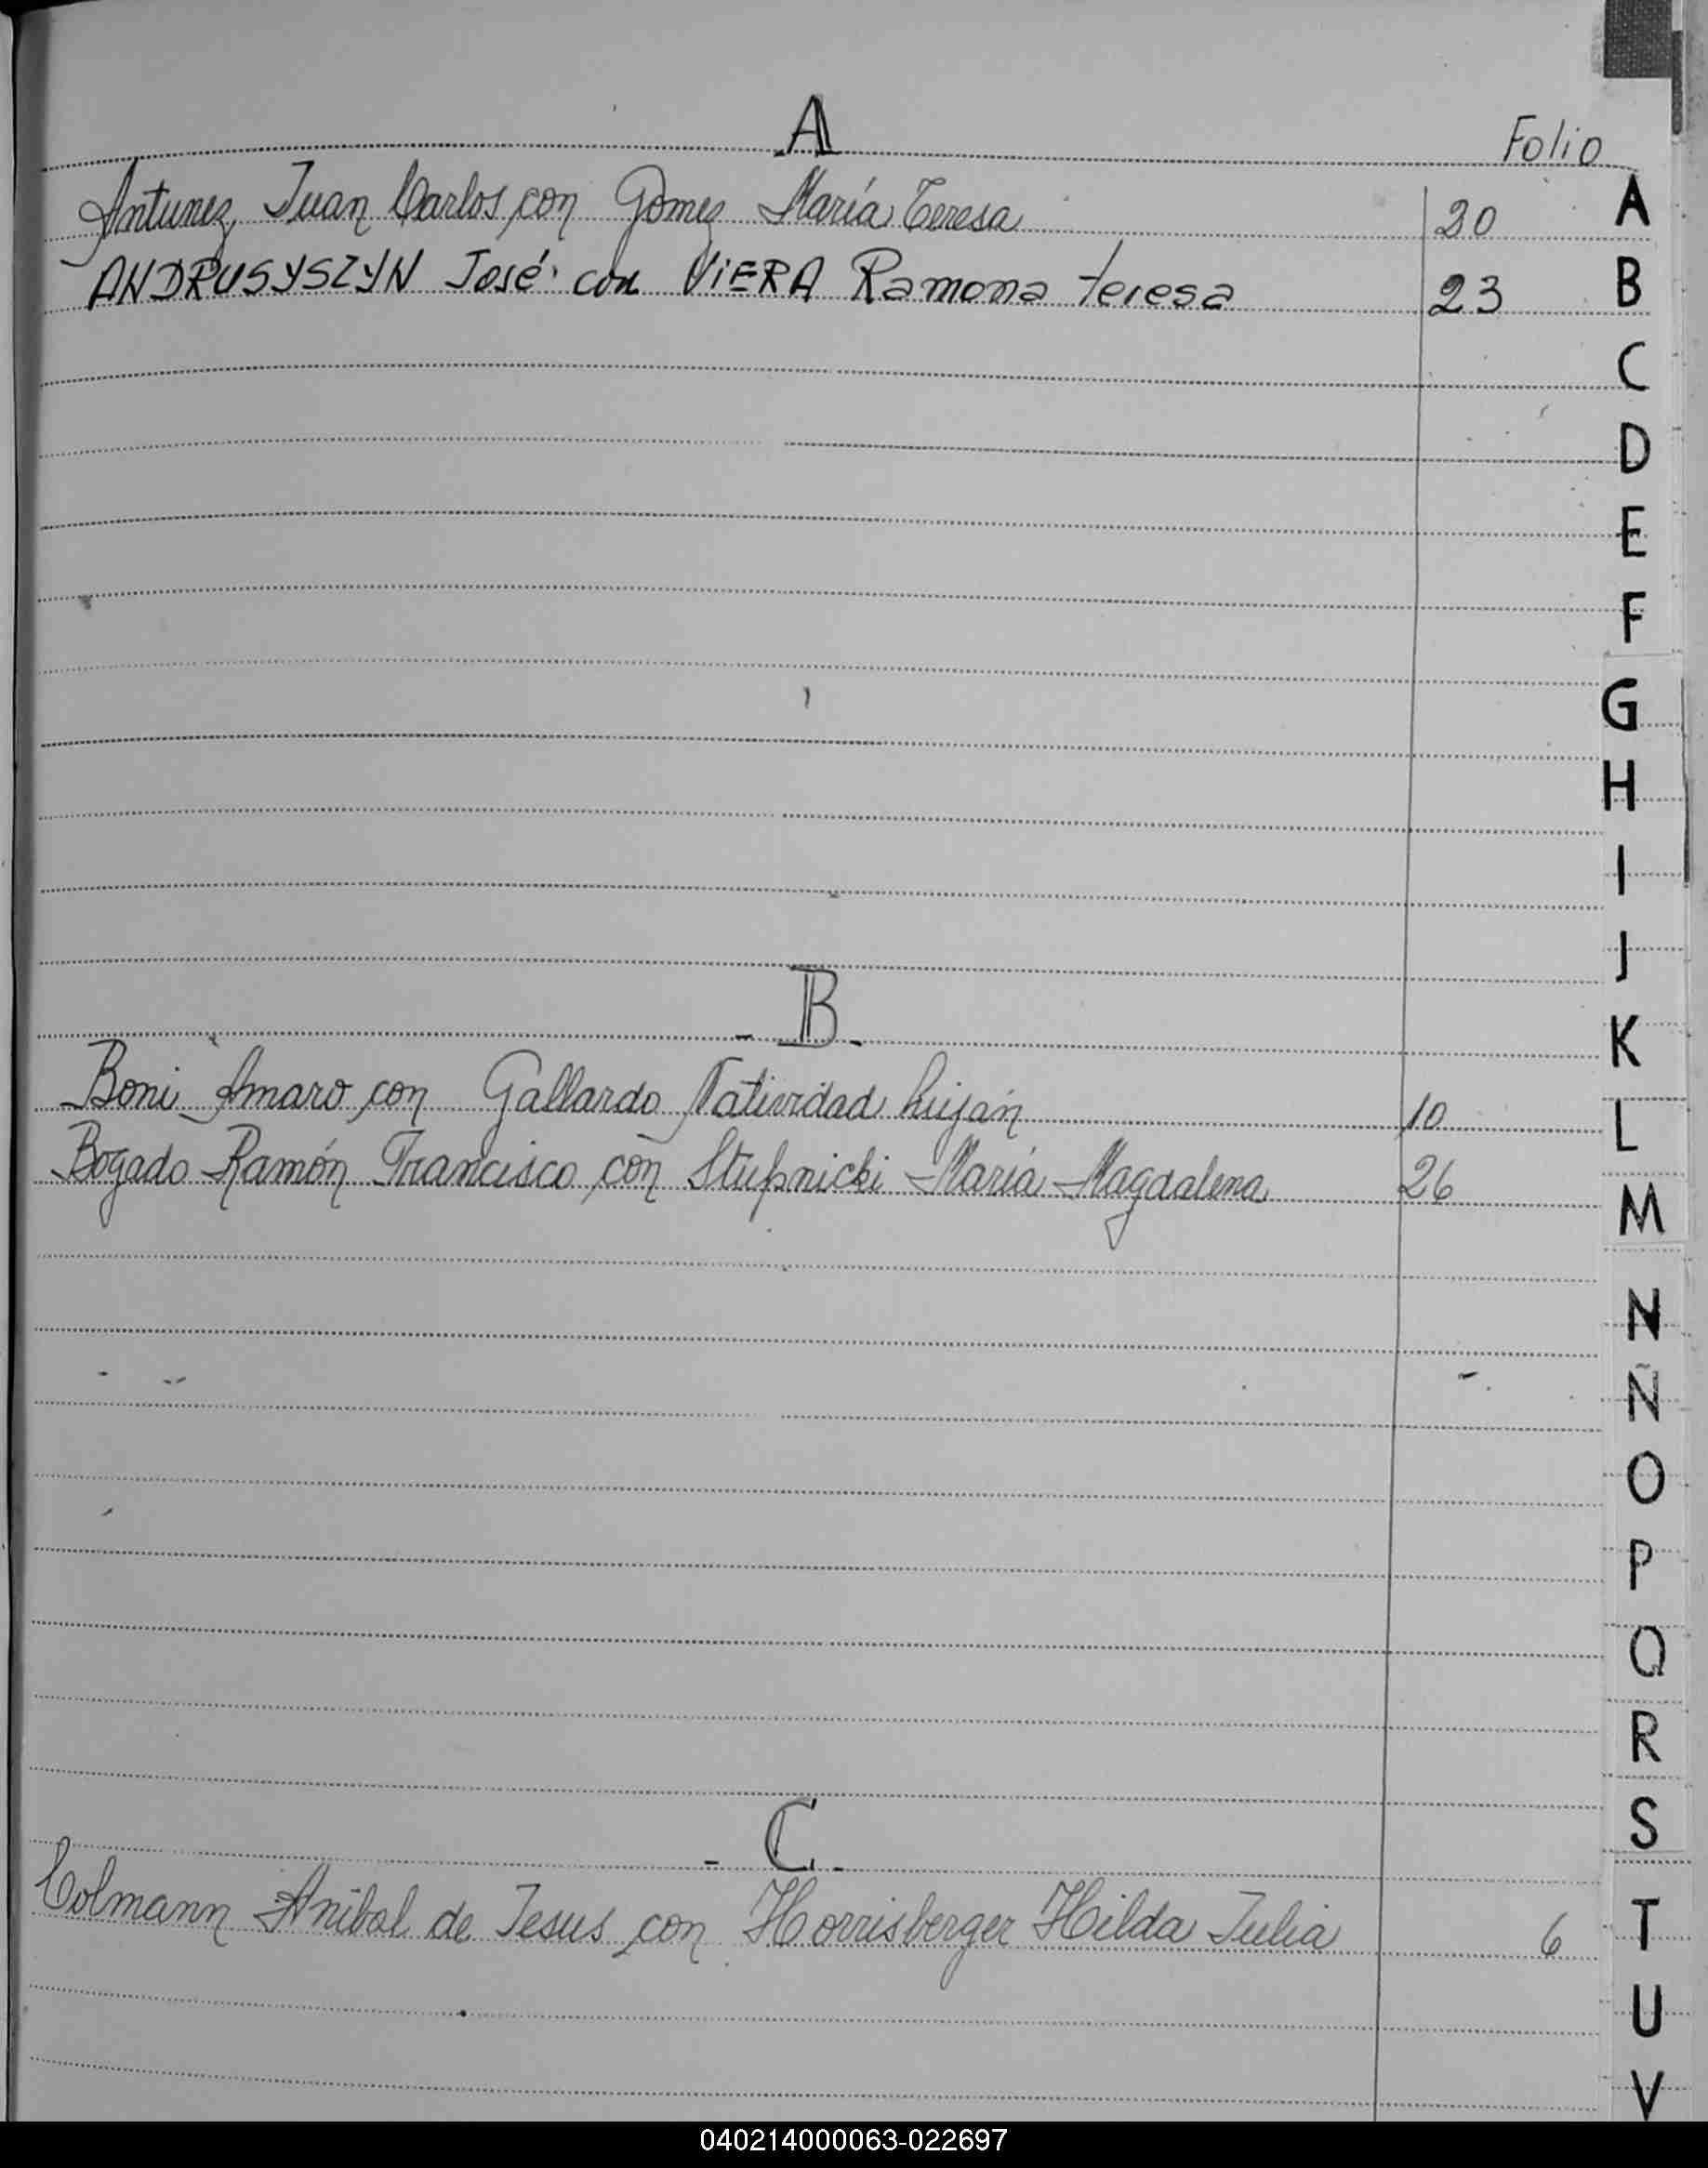 A
Folio
Antunez, Juan Carlos con Gomez María Teresa 20
ANDRUSYSZYN José con ViERA Ramona teresa 23
- B -
Boni Amaro con Gallardo Natividad Luján 10
Bogado Ramón Francisco con Stupnicki María Magdalena 26
- C -
Colmann Anibal de Jesus con Horrisberger Hilda Julia 6
A
B
C
D
E
F
G
H
I
J
K
L
M
N
Ñ
O
P
Q
R
S
T
U
V
040214000063-022697